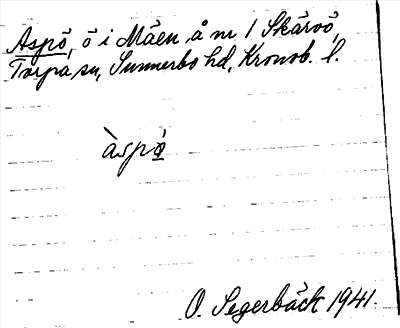 Aspö, ö i Måen å nr 1 Skärvö,
Torpa sn, Sunnerbo hd, Kronob. l.
àspö̀
O. Segerbäck 1941.